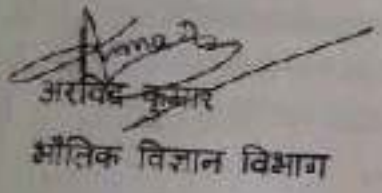 अरविंद कुमार
भौतिक विज्ञान विभाग